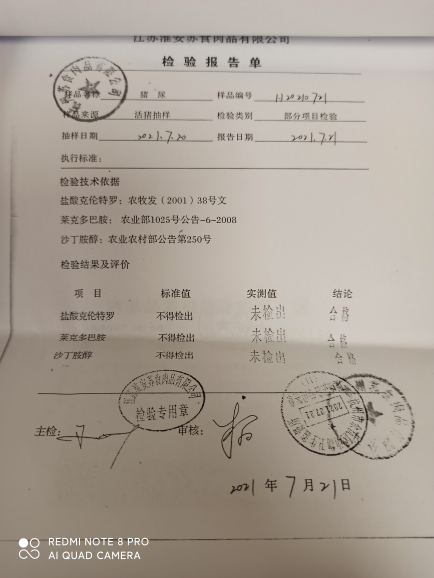 江苏淮安苏食肉品有限公司
检验报告单
样品名称 猪尿 样品编号
样品来源 活猪抽样 检验类别 部分项目检验
抽样日期 2021.7.20 报告日期 2021.7.21
执行标准:
检验技术依据
盐酸克伦特罗:农牧发(2001)38号文
莱克多巴胺:农业部1025号公告-6-2008
沙丁胺醇:农业农村部公告第250号
检验结果及评价
项目 标准值 实测值 结论
盐酸克伦特罗 不得检出 未检出 合格
莱克多巴胺 不得检出 未检出 合格
沙丁胺醇 不得检出 未检出 合格
江苏淮安苏食肉品有限公司
检验专用章
主检: 审核:
2021年7月21日
REDMI NOTE 8 PRO
AI QUAD CAMERA